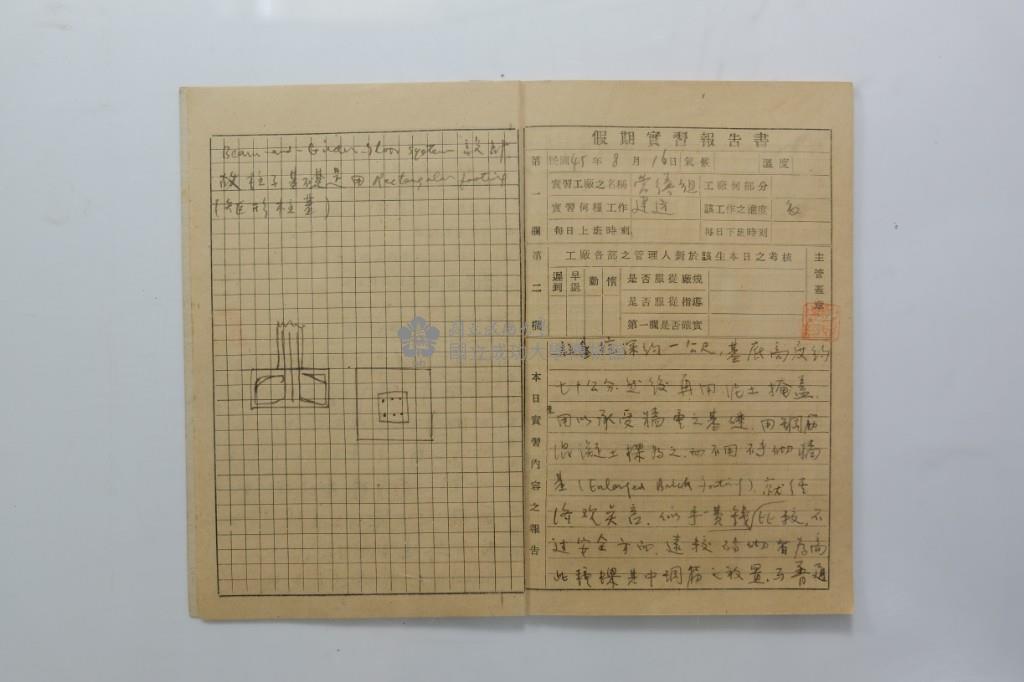 Beam-and-Girder floor system 設計
故柱子基礎是用 Rectangular footing
(矩形柱基)
假期實習報告書
第一欄
民國45年8月16日氣候 溫度
實習工廠之名稱 營繕組 工廠何部分
實習何種工作 建造 該工作之進度
每日上班時刻 每日下班時刻
第二欄
工廠各部之管理人對於該生本日之考核
遲到 早退 勤 惰
是否服從廠規
是否服從指導
第一欄是否確實
主管蓋章
國立成功大學
本日實習內容之報告
深約一公尺,基底高度約
七十公分.然後再用泥土掩蓋.
用以承受牆重之基礎,用鋼筋
混凝土樑為之,而不用磚砌牆
基(Enlarged Brick footing),就經
濟
過安全方面,遠較磚砌者為高
此種樑其中鋼筋之放置,與普通